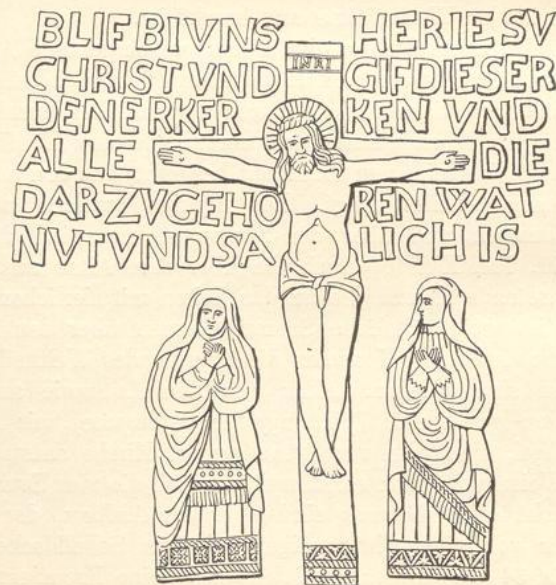 BLIF BI VNS HERIESV
INRI
CHRIST VND GIF DIESER
DENERKER KEN VND
ALLE DIE
DARZVGEHO REN WAT
NVTVNDSA LICH IS